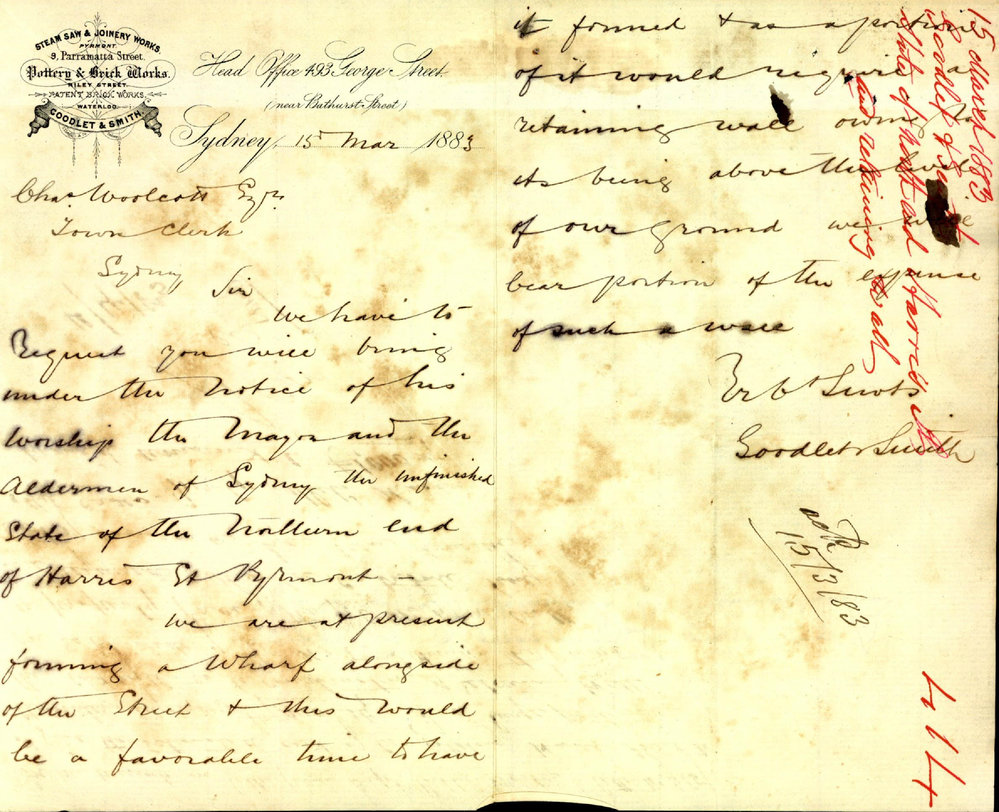 STEAM SAW & JOINERY WORKS.
PYRMONT.
9, Parramatta Street.
Pottery & Brick Works.
RILEY STREET.
PATENT BRICK WORKS.
WATERLOO.
GOODLET & SMITH.
Head Office 493 George Street
(near Bathurst Street)
Sydney, 15 Mar 1883
Chas Woolcott Esqre
Town Clerk
Sydney
Sir
We have to
Request you will bring
under the Notice of his
Worship the Mayor and the
Aldermen of Sydney the unfinished
State of the Northern end
of Harris St Pyrmont —
We are at present
forming a Wharf alongside
of the Street & this would
be a favorable time to have
it formed & as a portion
of it would require a
retaining wall owing to
its being above the level
of our ground we
bear portion of the expense
of such a wall
Goodlet & Smith
15/3/83
15 March 1883
Goodlet & Smith
State of North end Harris St
and retaining wall
414